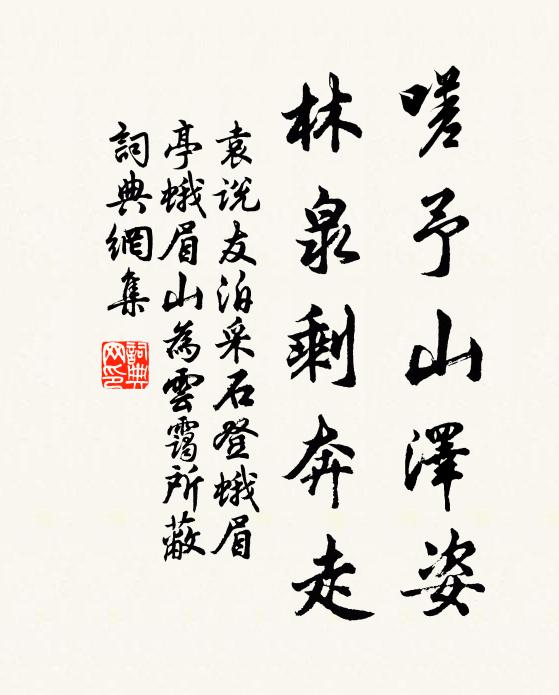 嗟予山澤姿
林泉剩奔走
袁说友泊采石登蛾眉
亭蛾眉山為雲靄所蔽
詞典網集
詞典网印